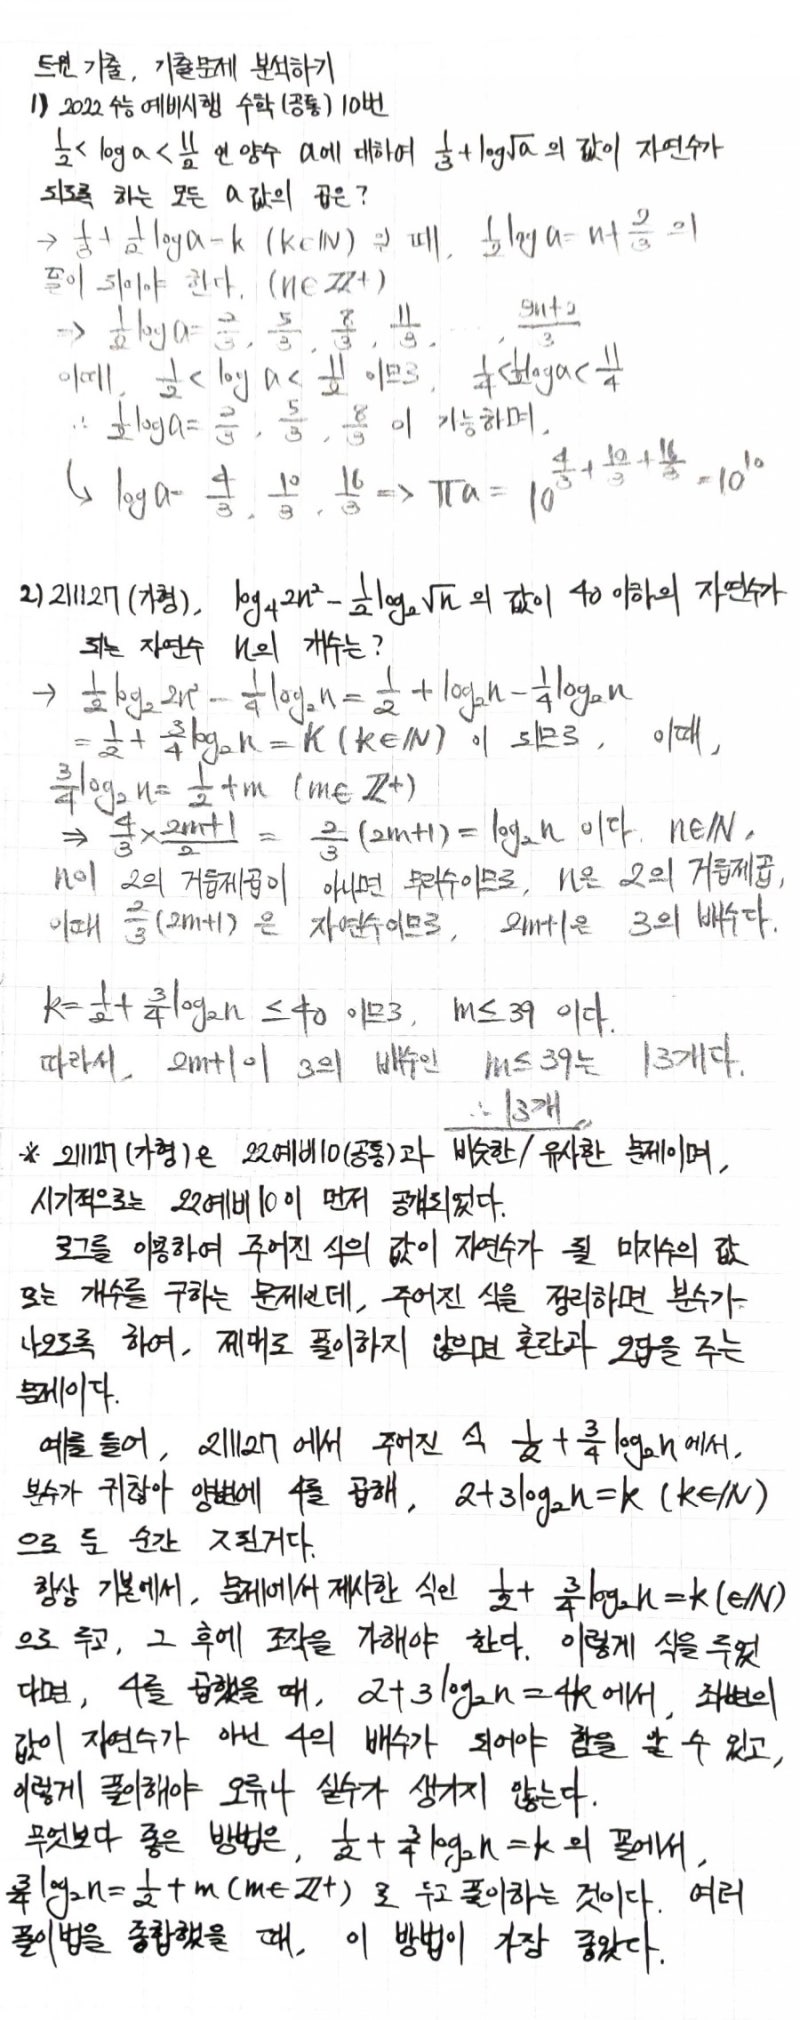 트윈 기출, 기출문제 분석하기
1) 2022 수능 예비시행 수학(공통) 10번
1/2 < log a < 11/2 인 양수 a에 대하여 1/3 + log√a 의 값이 자연수가
되도록 하는 모든 a 값의 곱은?
→ 1/3 + 1/2 log a = k (k∈ℕ) 일 때, 1/2 log a = n + 2/3 의
꼴이 되어야 한다. (n∈ℤ+)
⇒ 1/2 log a = 2/3, 5/3, 8/3, 11/3, ..., 3n+2/3
이때, 1/2 < log a < 11/2 이므로, 1/4 < 1/2 log a < 11/4
∴ 1/2 log a = 2/3, 5/3, 8/3 이 가능하며,
↳ log a = 4/3, 10/3, 16/3 => πa = 10^(4/3 + 10/3 + 16/3) = 10^10
2) 211127 (가형), log₄2n² - 1/2 log₂√n 의 값이 40 이하의 자연수가
되는 자연수 n의 개수는?
→ 1/2 log₂2n² - 1/4 log₂n = 1/2 + log₂n - 1/4 log₂n
= 1/2 + 3/4 log₂n = K (k∈ℕ) 이 되므로, 이때,
3/4 log₂n = 1/2 + m (m∈ℤ+)
⇒ 4/3 × 2m+1/2 = 2/3 (2m+1) = log₂n 이다. n∈ℕ,
n이 2의 거듭제곱이 아니면 무리수이므로, n은 2의 거듭제곱,
이때 2/3 (2m+1) 은 자연수이므로, 2m+1은 3의 배수다.
k = 1/2 + 3/4 log₂n ≤ 40 이므로, m ≤ 39 이다.
따라서, 2m+1이 3의 배수인 m ≤ 39는 13개다.
∴ 13개
※ 211127 (가형)은 22예비10(공통)과 비슷한/유사한 문제이며,
시기적으로는 22예비10이 먼저 공개되었다.
로그를 이용하여 주어진 식의 값이 자연수가 될 미지수의 값
또는 개수를 구하는 문제인데, 주어진 식을 정리하면 분수가
나오도록 하여, 제대로 풀이하지 않으면 혼란과 오답을 주는
문제이다.
예를 들어, 211127 에서 주어진 식 1/2 + 3/4 log₂n 에서,
분수가 귀찮아 양변에 4를 곱해, 2+3log₂n = k (k∈ℕ)
으로 둔 순간 ㅈ된거다.
항상 기본에서, 문제에서 제시한 식인 1/2 + 3/4 log₂n = k (∈ℕ)
으로 두고, 그 후에 조작을 가해야 한다. 이렇게 식을 두었
다면, 4를 곱했을 때, 2+3log₂n = 4k 에서, 좌변의
값이 자연수가 아닌 4의 배수가 되어야 함을 알 수 있고,
이렇게 풀이해야 오류나 실수가 생기지 않는다.
무엇보다 좋은 방법은, 1/2 + 3/4 log₂n = k 의 꼴에서,
3/4 log₂n = 1/2 + m (m∈ℤ+) 로 두고 풀이하는 것이다. 여러
풀이법을 종합했을 때, 이 방법이 가장 좋았다.